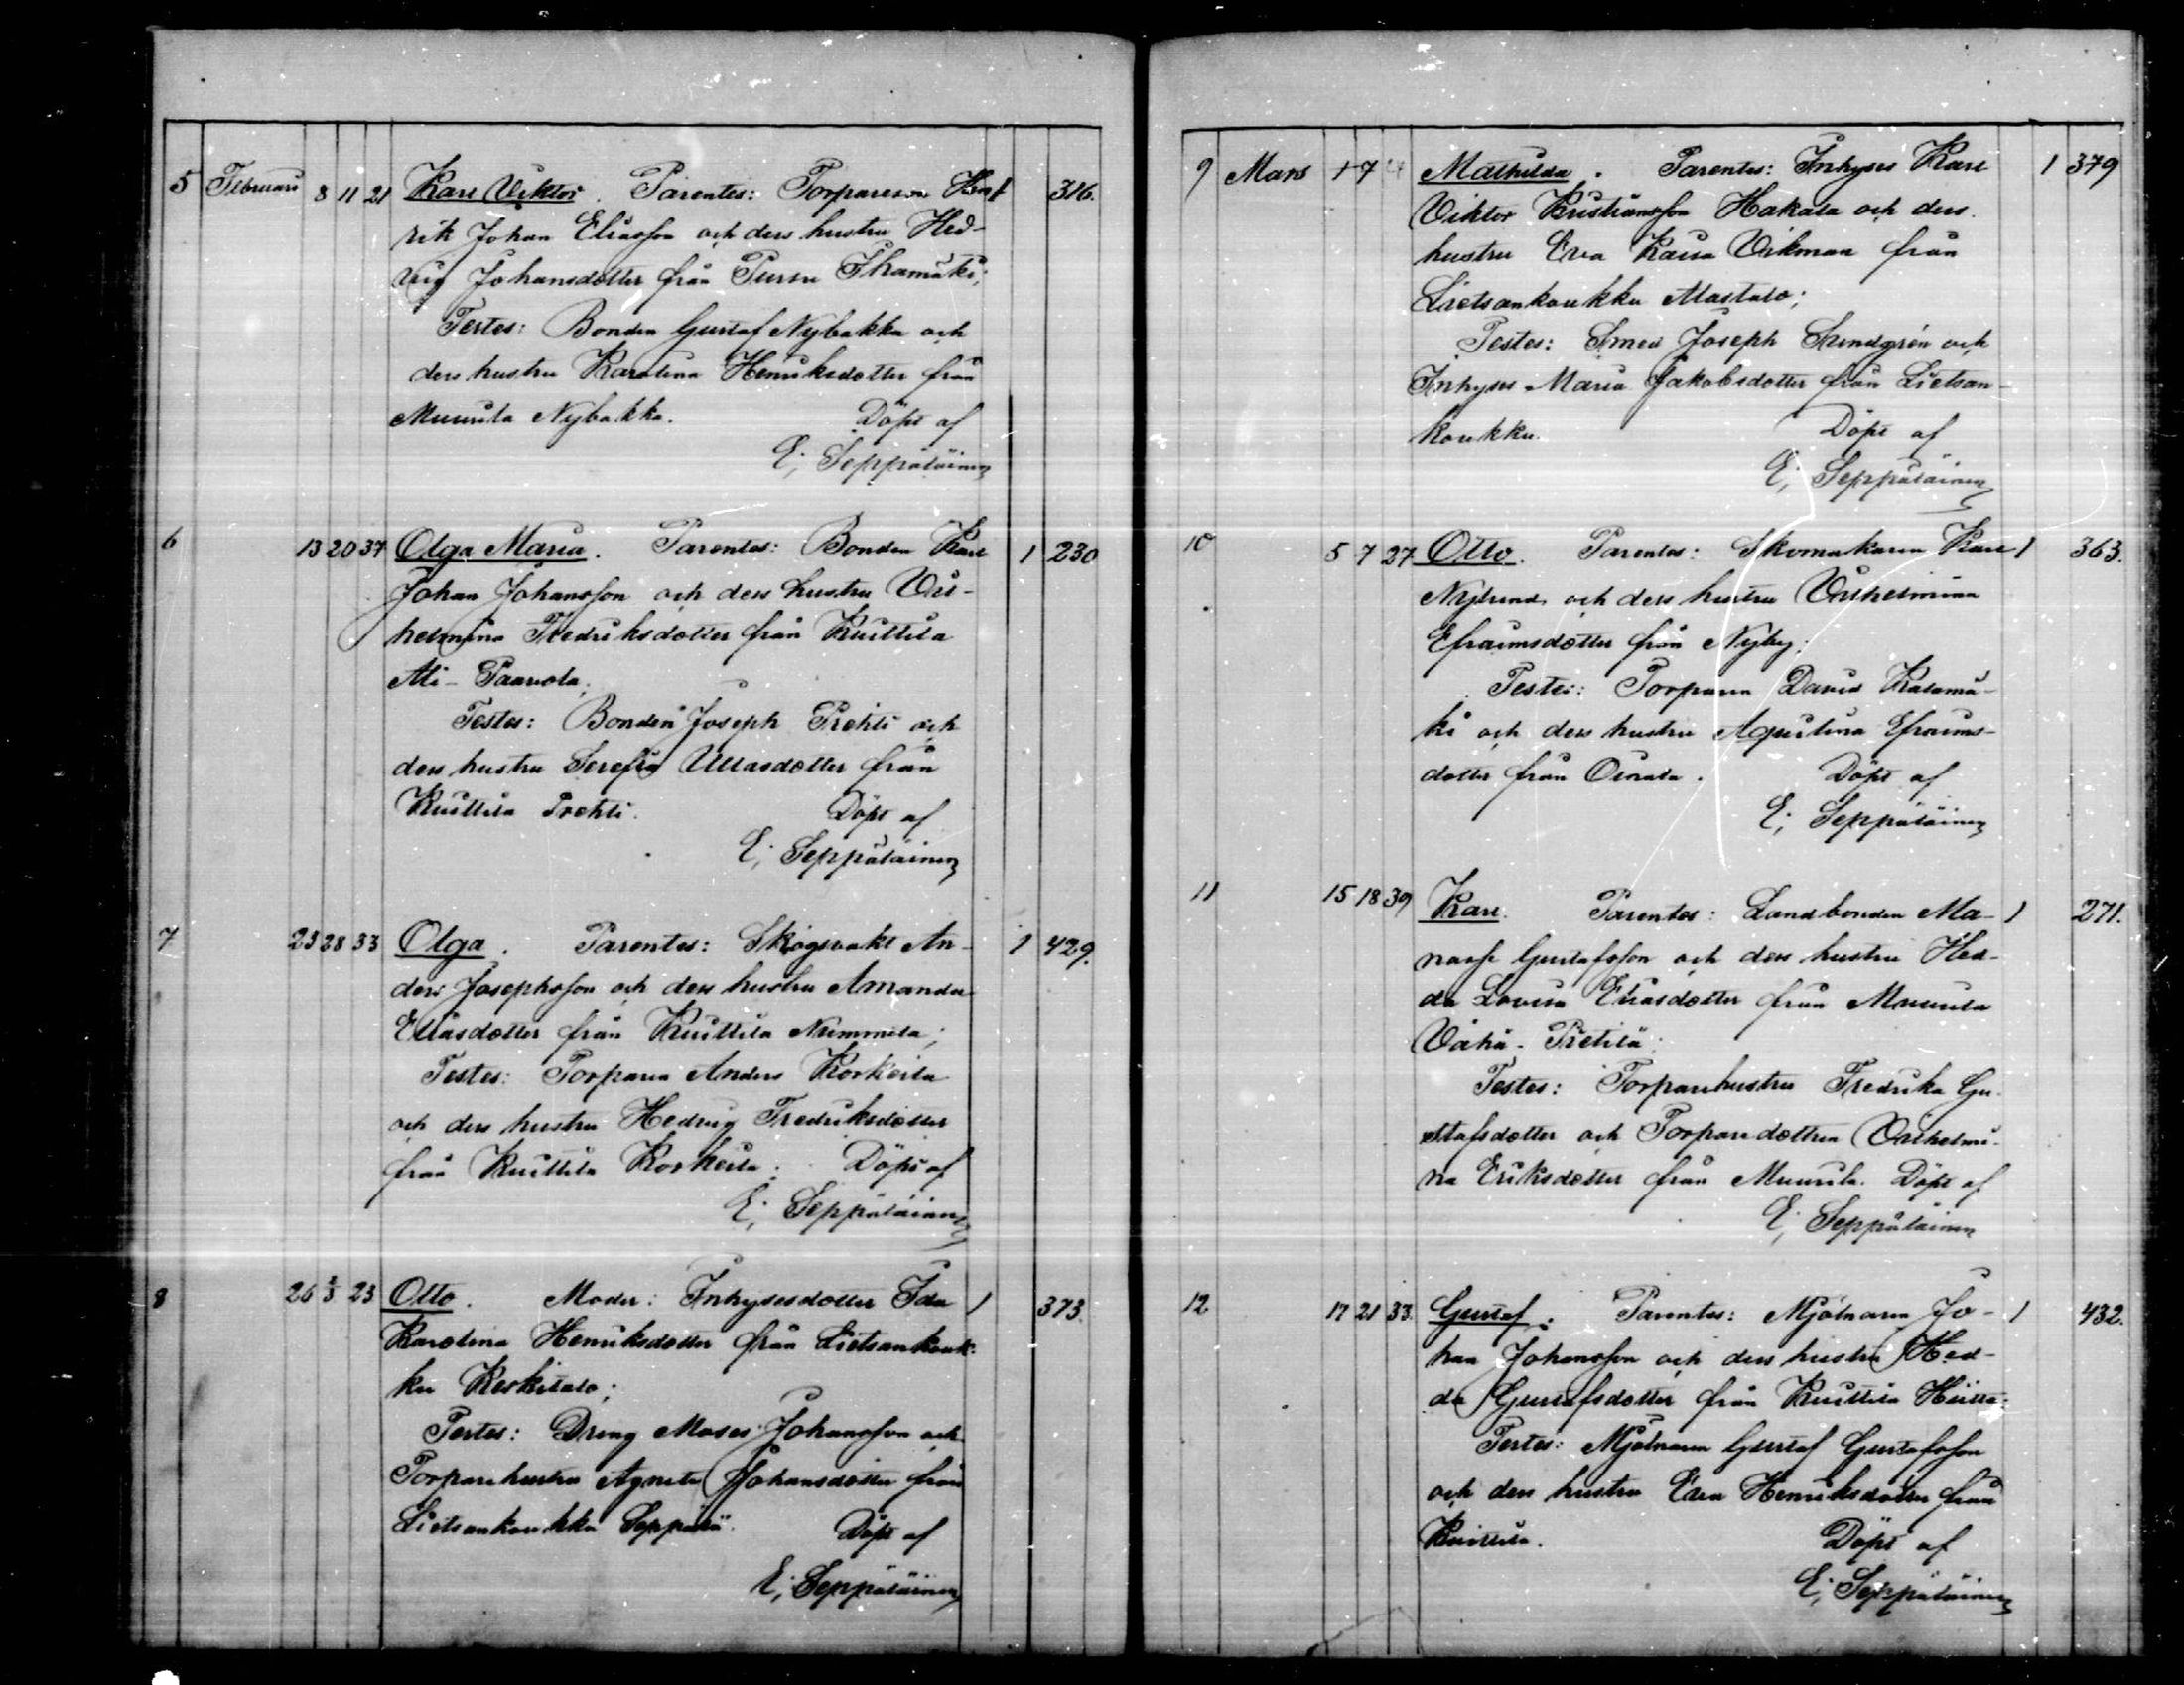 5 Februari 8 11 21 Karl Viktor. Parentes: Torparesson Hen- 1 316.
rik Johan Eliasson och dess hustru Hed-
vig Johansdotter från Pursu Ihamäki;
Testes: Bonden Gustaf Nybakka och
dess hustru Karolina Henriksdotter från
Muurila Nybakka. Döpt af
E; Seppäläinen
6 13 20 37 Olga Maria. Parentes: Bonden Karl 1 230
Johan Johansson och dess hustru Vil-
helmina Fredriksdotter från Kuittila
Ali-Paavola.
Testes: Bonden Joseph Prehti och
dess hustru Serefia Ullasdotter från
Kuittila Prehti. Döpt af
E; Seppäläinen
7 23 28 33 Olga. Parentes: Skogsvakt An- 1 429.
ders Josephsson och dess hustru Amanda
Eliasdotter från Kuittila Nummila;
Testes: Torparen Anders Korkeila
och dess hustru Hedvig Fredriksdotter
från Kuittila Korkeila. Döpt af
E; Seppäläinen
8 26 2/3 23 Otto. Moder: Inhysesdotter Ida 1 373.
Karolina Henriksdotter från Lietsankouk-
ku Keskitalo;
Testes: Dräng Moses Johansson och
Torparehustru Agneta Johansdotter från
Lietsankoukku Seppälä. Döpt af
E; Seppäläinen
9 Mars 1 7 Mathilda. Parentes: Inhyses Karl 1 379
Viktor Kristiansson Hakala och dess
hustru Eva Kaisa Vikman från
Lietsankoukku Alastalo;
Testes: Smed Joseph Lindgrén och
Inhyses Maria Jakobsdotter från Lietsan-
koukku. Döpt af
E; Seppäläinen
10 5 7 27 Otto. Parentes: Skomakaren Karl 1 363.
Nylund och dess hustru Vilhelmina
Efraimsdotter från Nyby;
Testes: Torparen David Kalamä-
ki och dess hustru Agustina Efraims-
dotter från Oinala. Döpt af
E; Seppäläinen
11 15 18 39 Karl. Parentes: Landbonden Ma- 1 271.
nasse Gustafsson och dess hustru Hed-
da Lovisa Eliasdotter från Muurila
Vähä-Pietilä;
Testes: Torparehustru Fredrika Gu-
stafsdotter och Torparedottren Vilhelmi-
na Eriksdotter från Muurila. Döpt af
E; Seppäläinen
12 17 21 33. Gustaf. Parentes: Mjölnaren Jo- 1 432.
han Johansson och dess hustru Hed-
da Gustafsdotter från Kuittila
Testes: Mjölnaren Gustaf Gustafsson
och dess hustru Eva Henriksdotter från
Kuittila. Döpt af
E; Seppäläinen